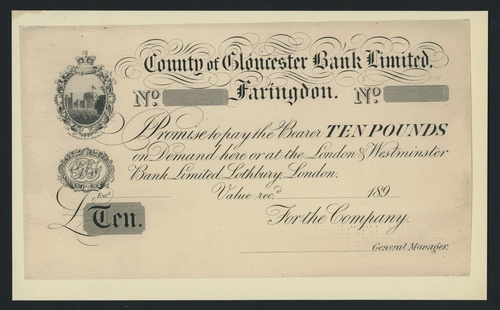 County of Gloucester Bank Limited.
No. Faringdon. No.
I Promise to pay the Bearer TEN POUNDS
on Demand here or at the London & Westminster
Bank Limited Lothbury, London.
Value recd. 189
Entd.
£ Ten. For the Company.
General Manager.